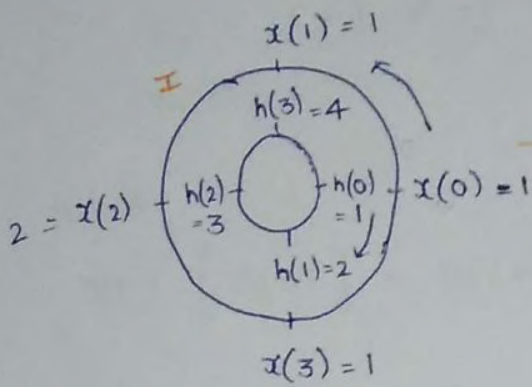 x(1) = 1
I
h(3) = 4
2 = x(2)
h(2) = 3
h(0) = 1
x(0) = 1
h(1) = 2
x(3) = 1